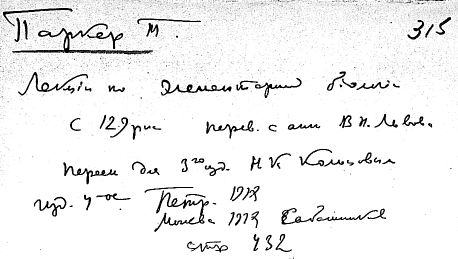 Паркер Т. 315
Лекции по элементарной биологии
С 129 рис перев. с англ В.Н. Львова.
перев для 3го изд. Н К Кольцовым
изд. 4-ое. Петр. 1918
Москва 1918 Сабашников
стр 432